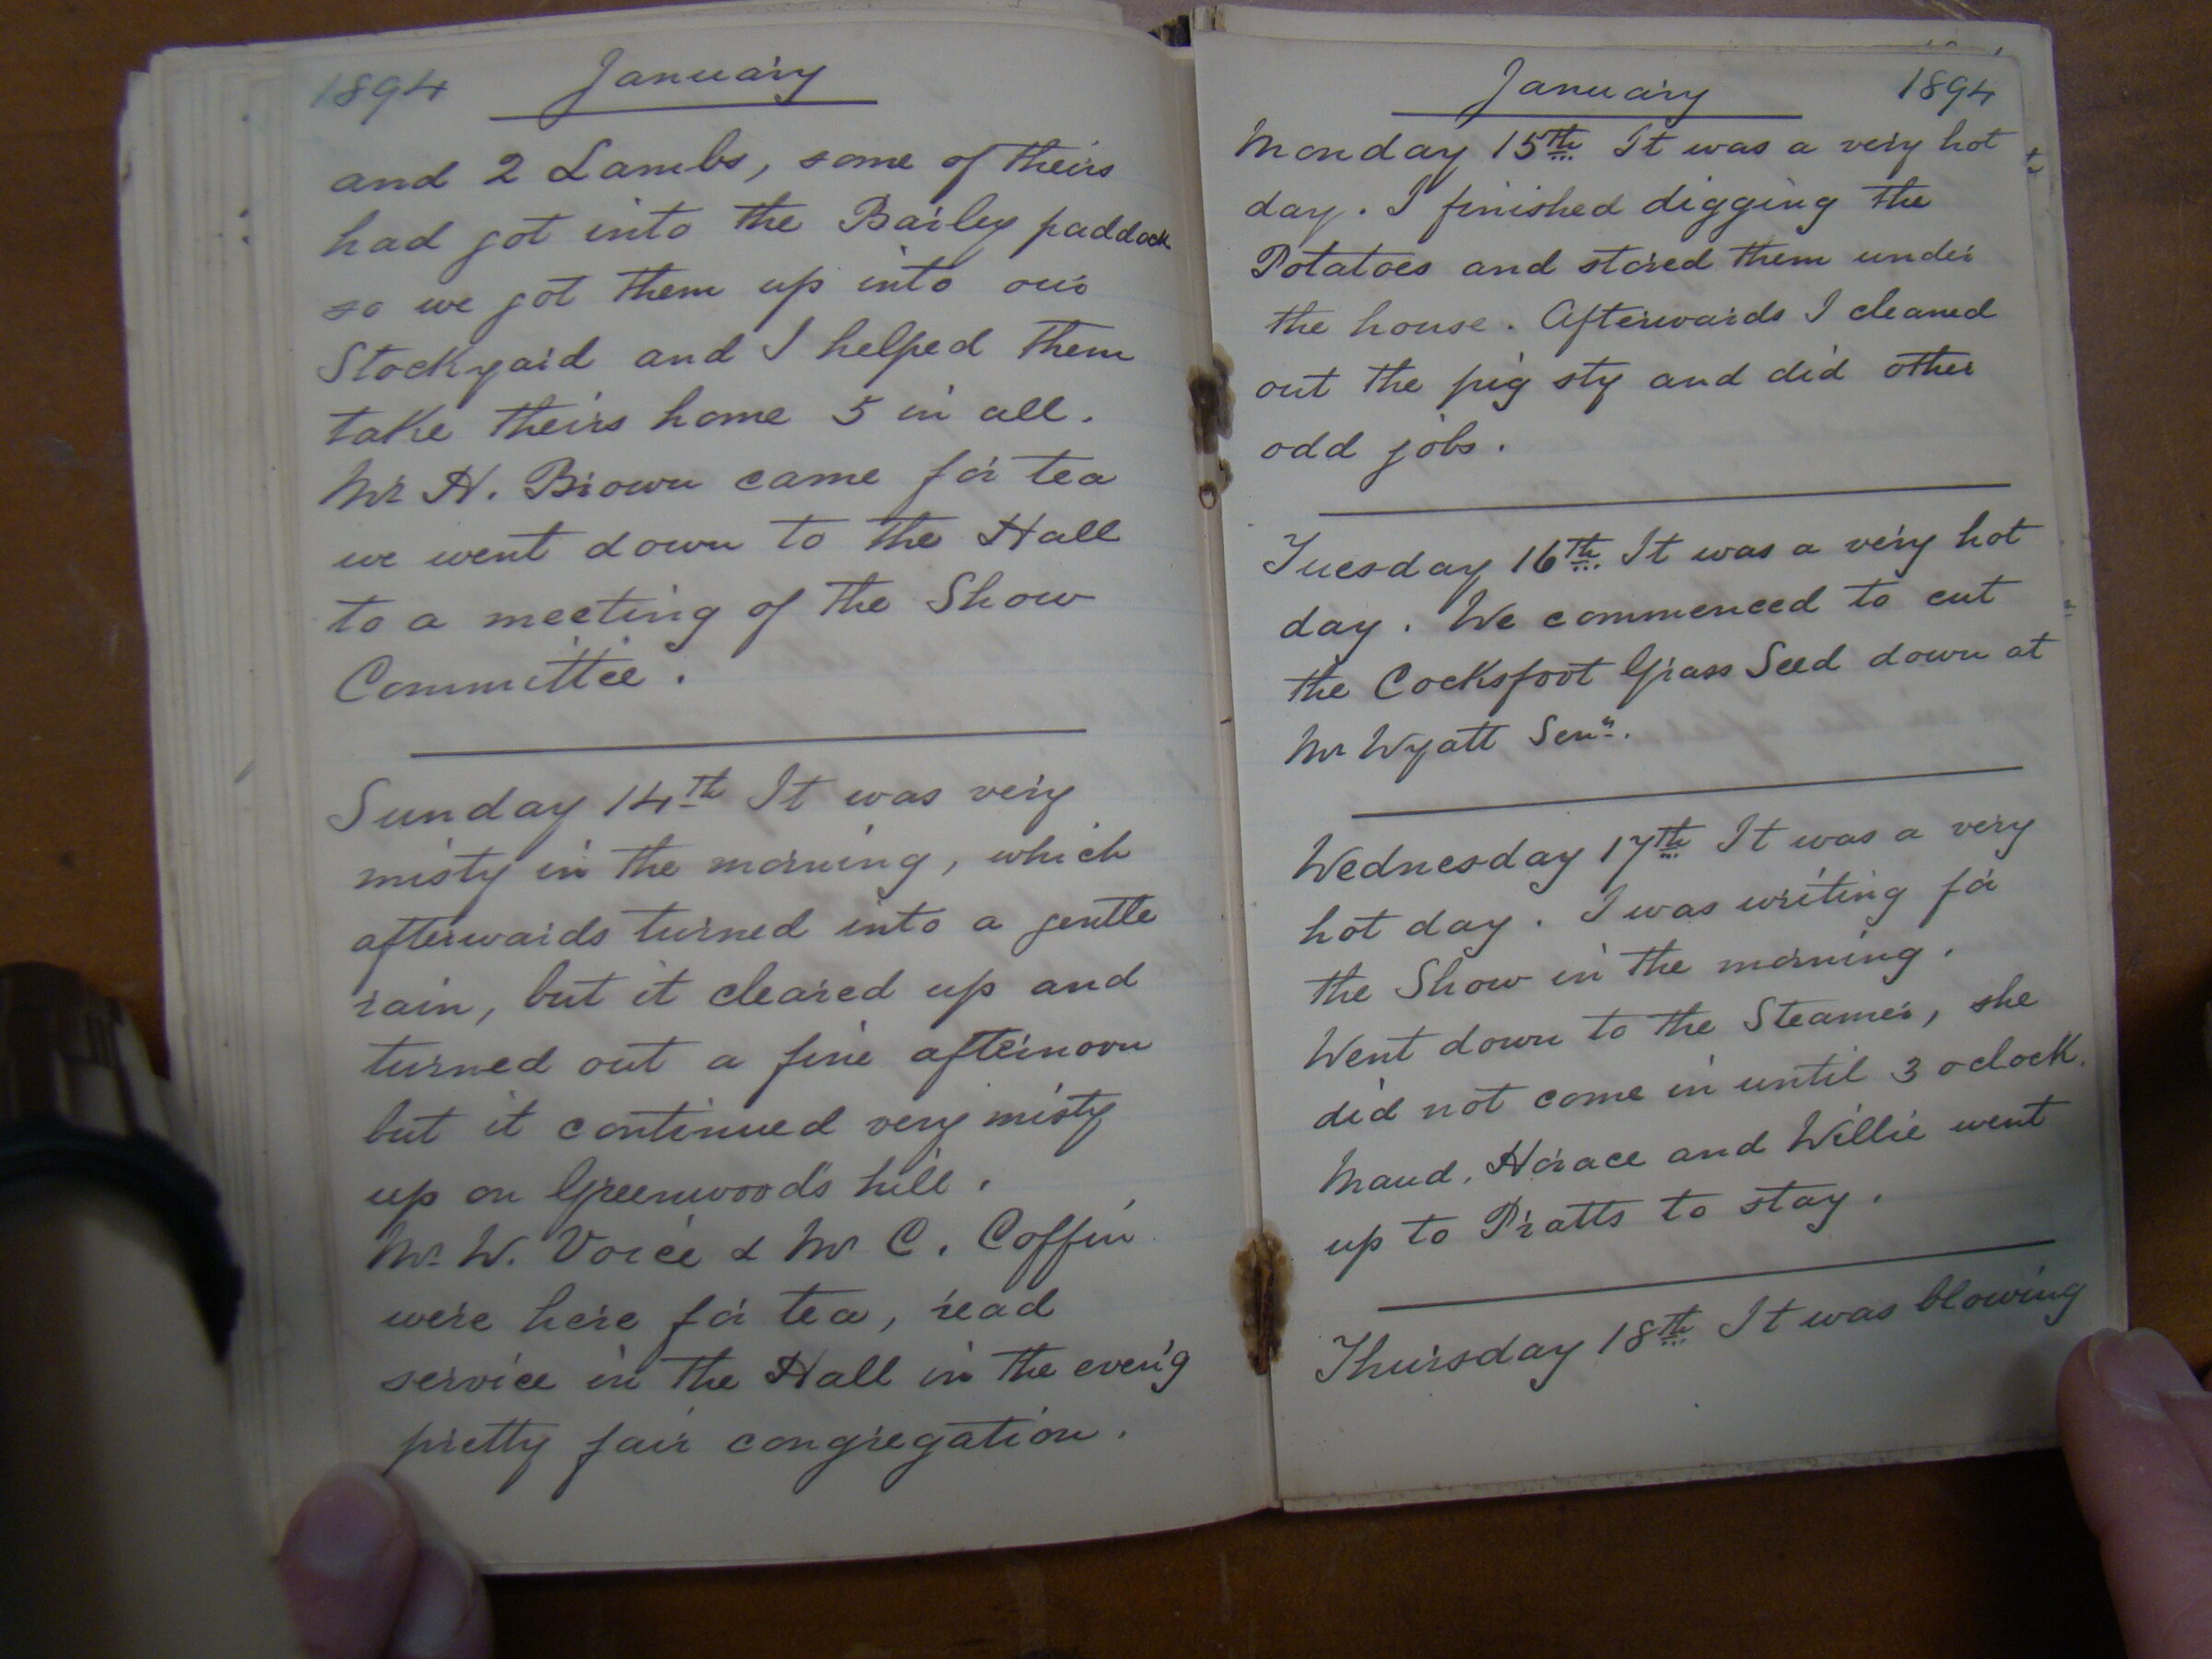 1894 January
and 2 Lambs, some of theirs
had got into the Barley paddock
so we got them up into our
Stockyard and I helped them
take theirs home 5 in all.
Mr H. Brown came for tea
we went down to the Hall
to a meeting of the Show
Committee.
Sunday 14th It was very
misty in the morning, which
afterwards turned into a gentle
rain, but it cleared up and
turned out a fine afternoon
but it continued very misty
up on Greenwoods hill.
Mr W. Voice & Mr C. Coffin
were here for tea, read
service in the Hall in the even'g
pretty fair congregation.
January 1894
Monday 15th It was a very hot
day. I finished digging the
Potatoes and stored them under
the house. Afterwards I cleaned
out the pig sty and did other
odd jobs.
Tuesday 16th It was a very hot
day. We commenced to cut
the Cocksfoot Grass Seed down at
Mr Wyatt Senr.
Wednesday 17th It was a very
hot day. I was writing for
the Show in the morning.
Went down to the Steamer, she
did not come in until 3 oclock.
Maud, Horace and Willie went
up to Pratts to stay.
Thursday 18th It was blowing